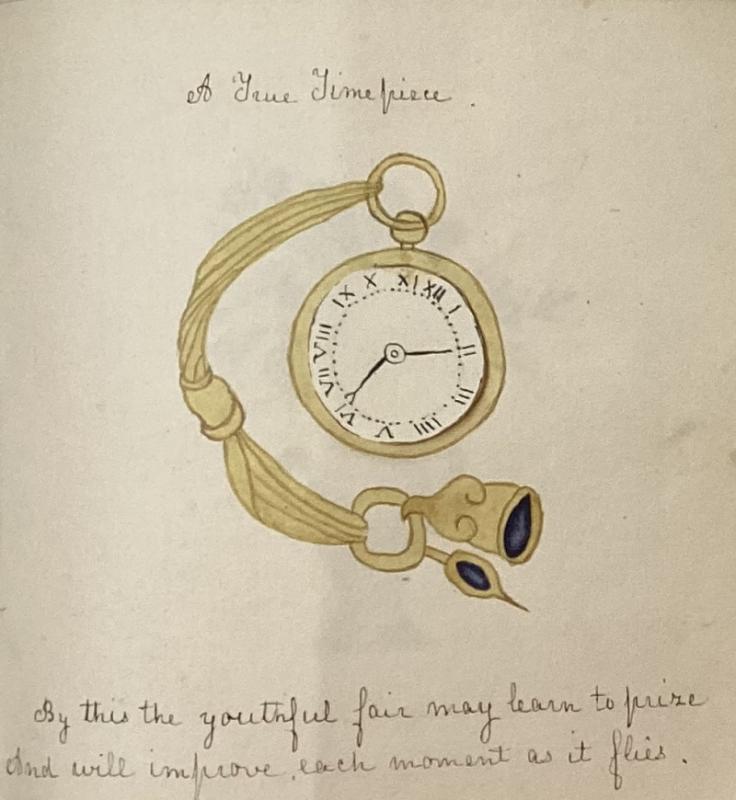 A True Timepiece.
XII
I
II
III
IIII
V
VI
VII
VIII
IX
X
XI
By this the youthful fair may learn to prize
And will improve each moment as it flies.